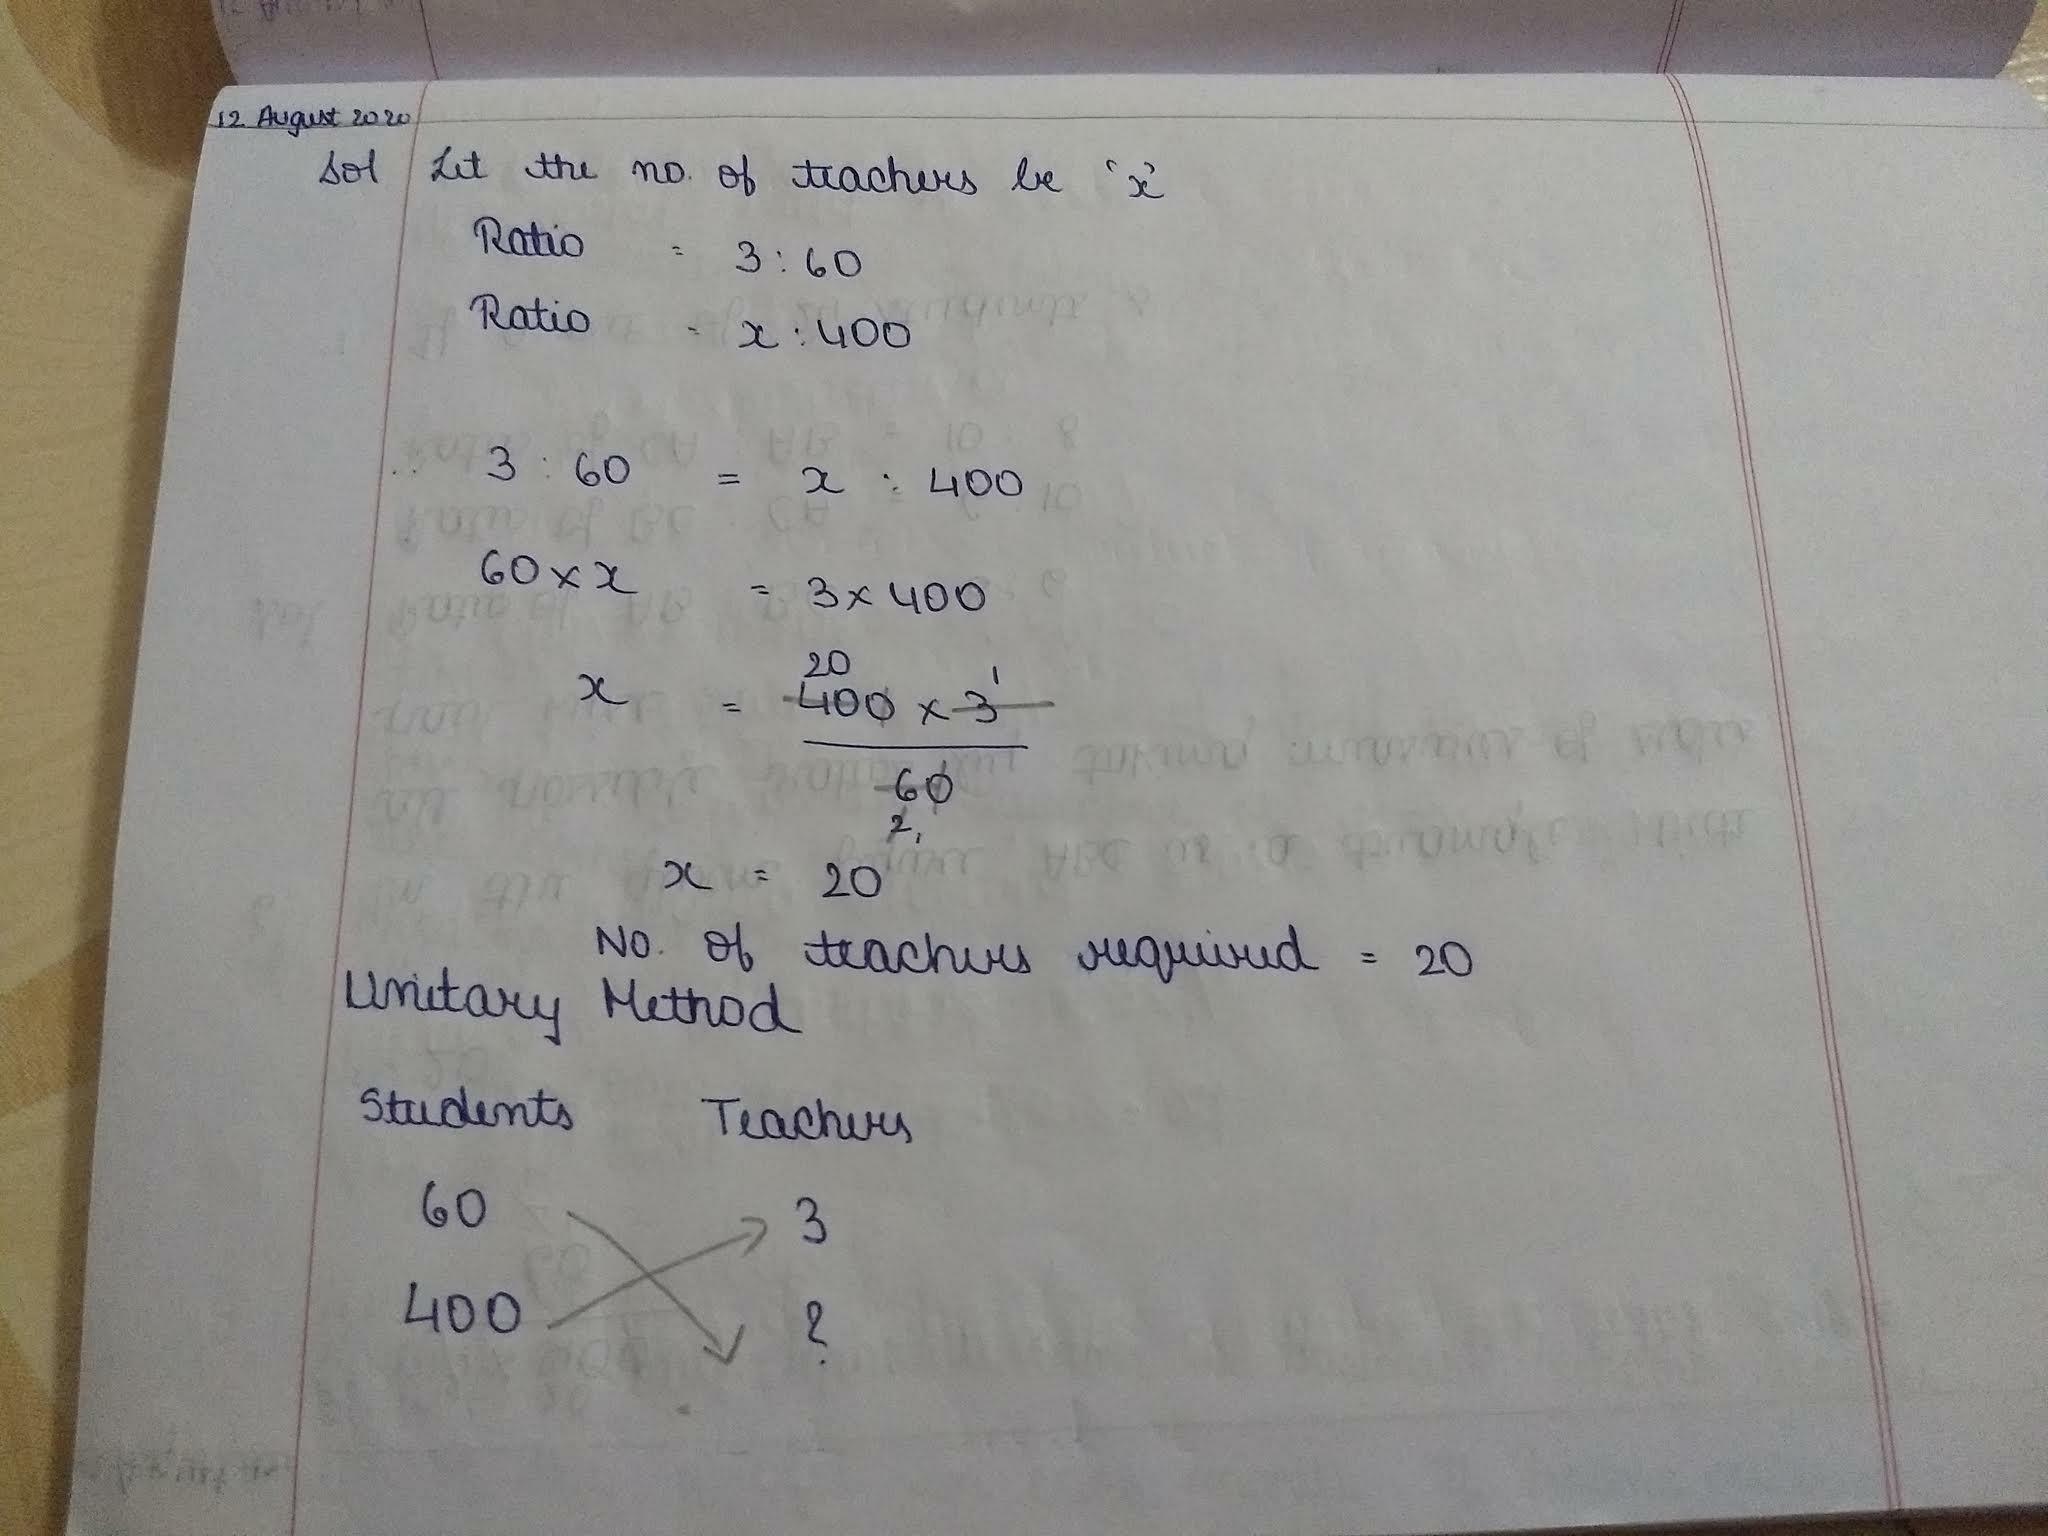 12 August 2020
Sol Let the no. of teachers be 'x'
Ratio = 3:60
Ratio = x:400
∴ 3 : 60 = x : 400
60 × x = 3 × 400
20 1
x = 400 × 3
60
2
x = 20
No. of teachers required = 20
Unitary Method
Students Teachers
60 3
400 ?